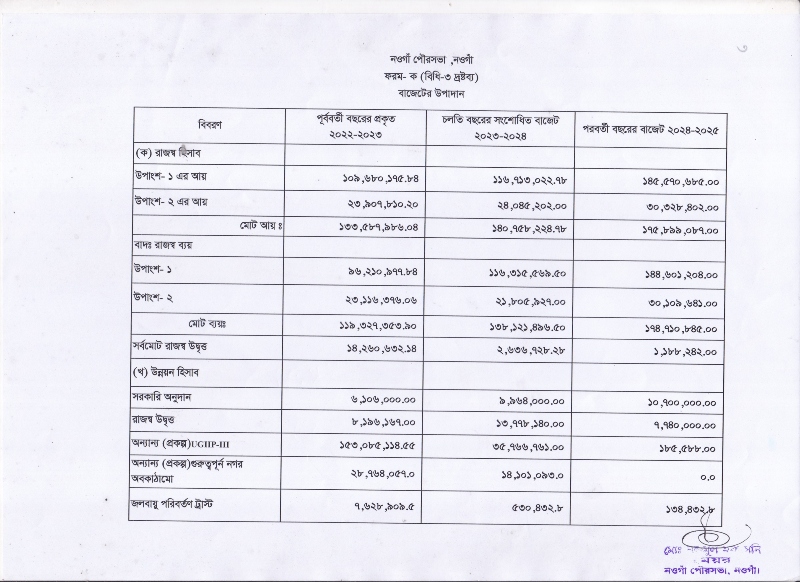 ৩
নওগাঁ পৌরসভা ,নওগাঁ
ফরম- ক (বিধি-৩ দ্রষ্টব্য)
বাজেটের উপাদান
বিবরণ পূর্ববর্তী বছরের প্রকৃত ২০২২-২০২৩ চলতি বছরের সংশোধিত বাজেট ২০২৩-২০২৪ পরবর্তী বছরের বাজেট ২০২৪-২০২৫
(ক) রাজস্ব হিসাব
উপাংশ- ১ এর আয় ১০৯,৬৮০,১৭৫.৮৪ ১১৬,৭১৩,০২২.৭৮ ১৪৫,৫৭০,৬৮৫.০০
উপাংশ- ২ এর আয় ২৩,৯০৭,৮১০.২০ ২৪,০৪৫,২০২.০০ ৩০,৩২৮,৪০২.০০
মোট আয় ঃ ১৩৩,৫৮৭,৯৮৬.০৪ ১৪০,৭৫৮,২২৪.৭৮ ১৭৫,৮৯৯,০৮৭.০০
বাদঃ রাজস্ব ব্যয়
উপাংশ- ১ ৯৬,২১০,৯৭৭.৮৪ ১১৬,৩১৫,৫৬৯.৫০ ১৪৪,৬০১,২০৪.০০
উপাংশ- ২ ২৩,১১৬,৩৭৬.০৬ ২১,৮০৫,৯২৭.০০ ৩০,১০৯,৬৪১.০০
মোট ব্যয়ঃ ১১৯,৩২৭,৩৫৩.৯০ ১৩৮,১২১,৪৯৬.৫০ ১৭৪,৭১০,৮৪৫.০০
সর্বমোট রাজস্ব উদ্বৃত্ত ১৪,২৬০,৬৩২.১৪ ২,৬৩৬,৭২৮.২৮ ১,১৮৮,২৪২.০০
(খ) উন্নয়ন হিসাব
সরকারি অনুদান ৬,১০৬,০০০.০০ ৯,৯৬৪,০০০.০০ ১০,৭০০,০০০.০০
রাজস্ব উদ্বৃত্ত ৮,১৯৬,১৬৭.০০ ১৩,৭৭৮,১৪০.০০ ৭,৭৪০,০০০.০০
অন্যান্য (প্রকল্প)UGIIP-III ১৫৩,০৮৫,১১৪.৫৫ ৩৫,৭৬৬,৭৬১.০০ ১৮৫,৫৮৮.০০
অন্যান্য (প্রকল্প)গুরুত্বপূর্ন নগর
অবকাঠামো ২৮,৭৬৪,০৫৭.০ ১৪,১০১,০৯৩.০ ০.০
জলবায়ু পরিবর্তণ ট্রাস্ট ৭,৬২৮,৯০৯.৫ ৫৩০,৪৩২.৮ ১৩৪,৪৩২.৮
মোঃ
নওগাঁ পৌরসভা, নওগাঁ।